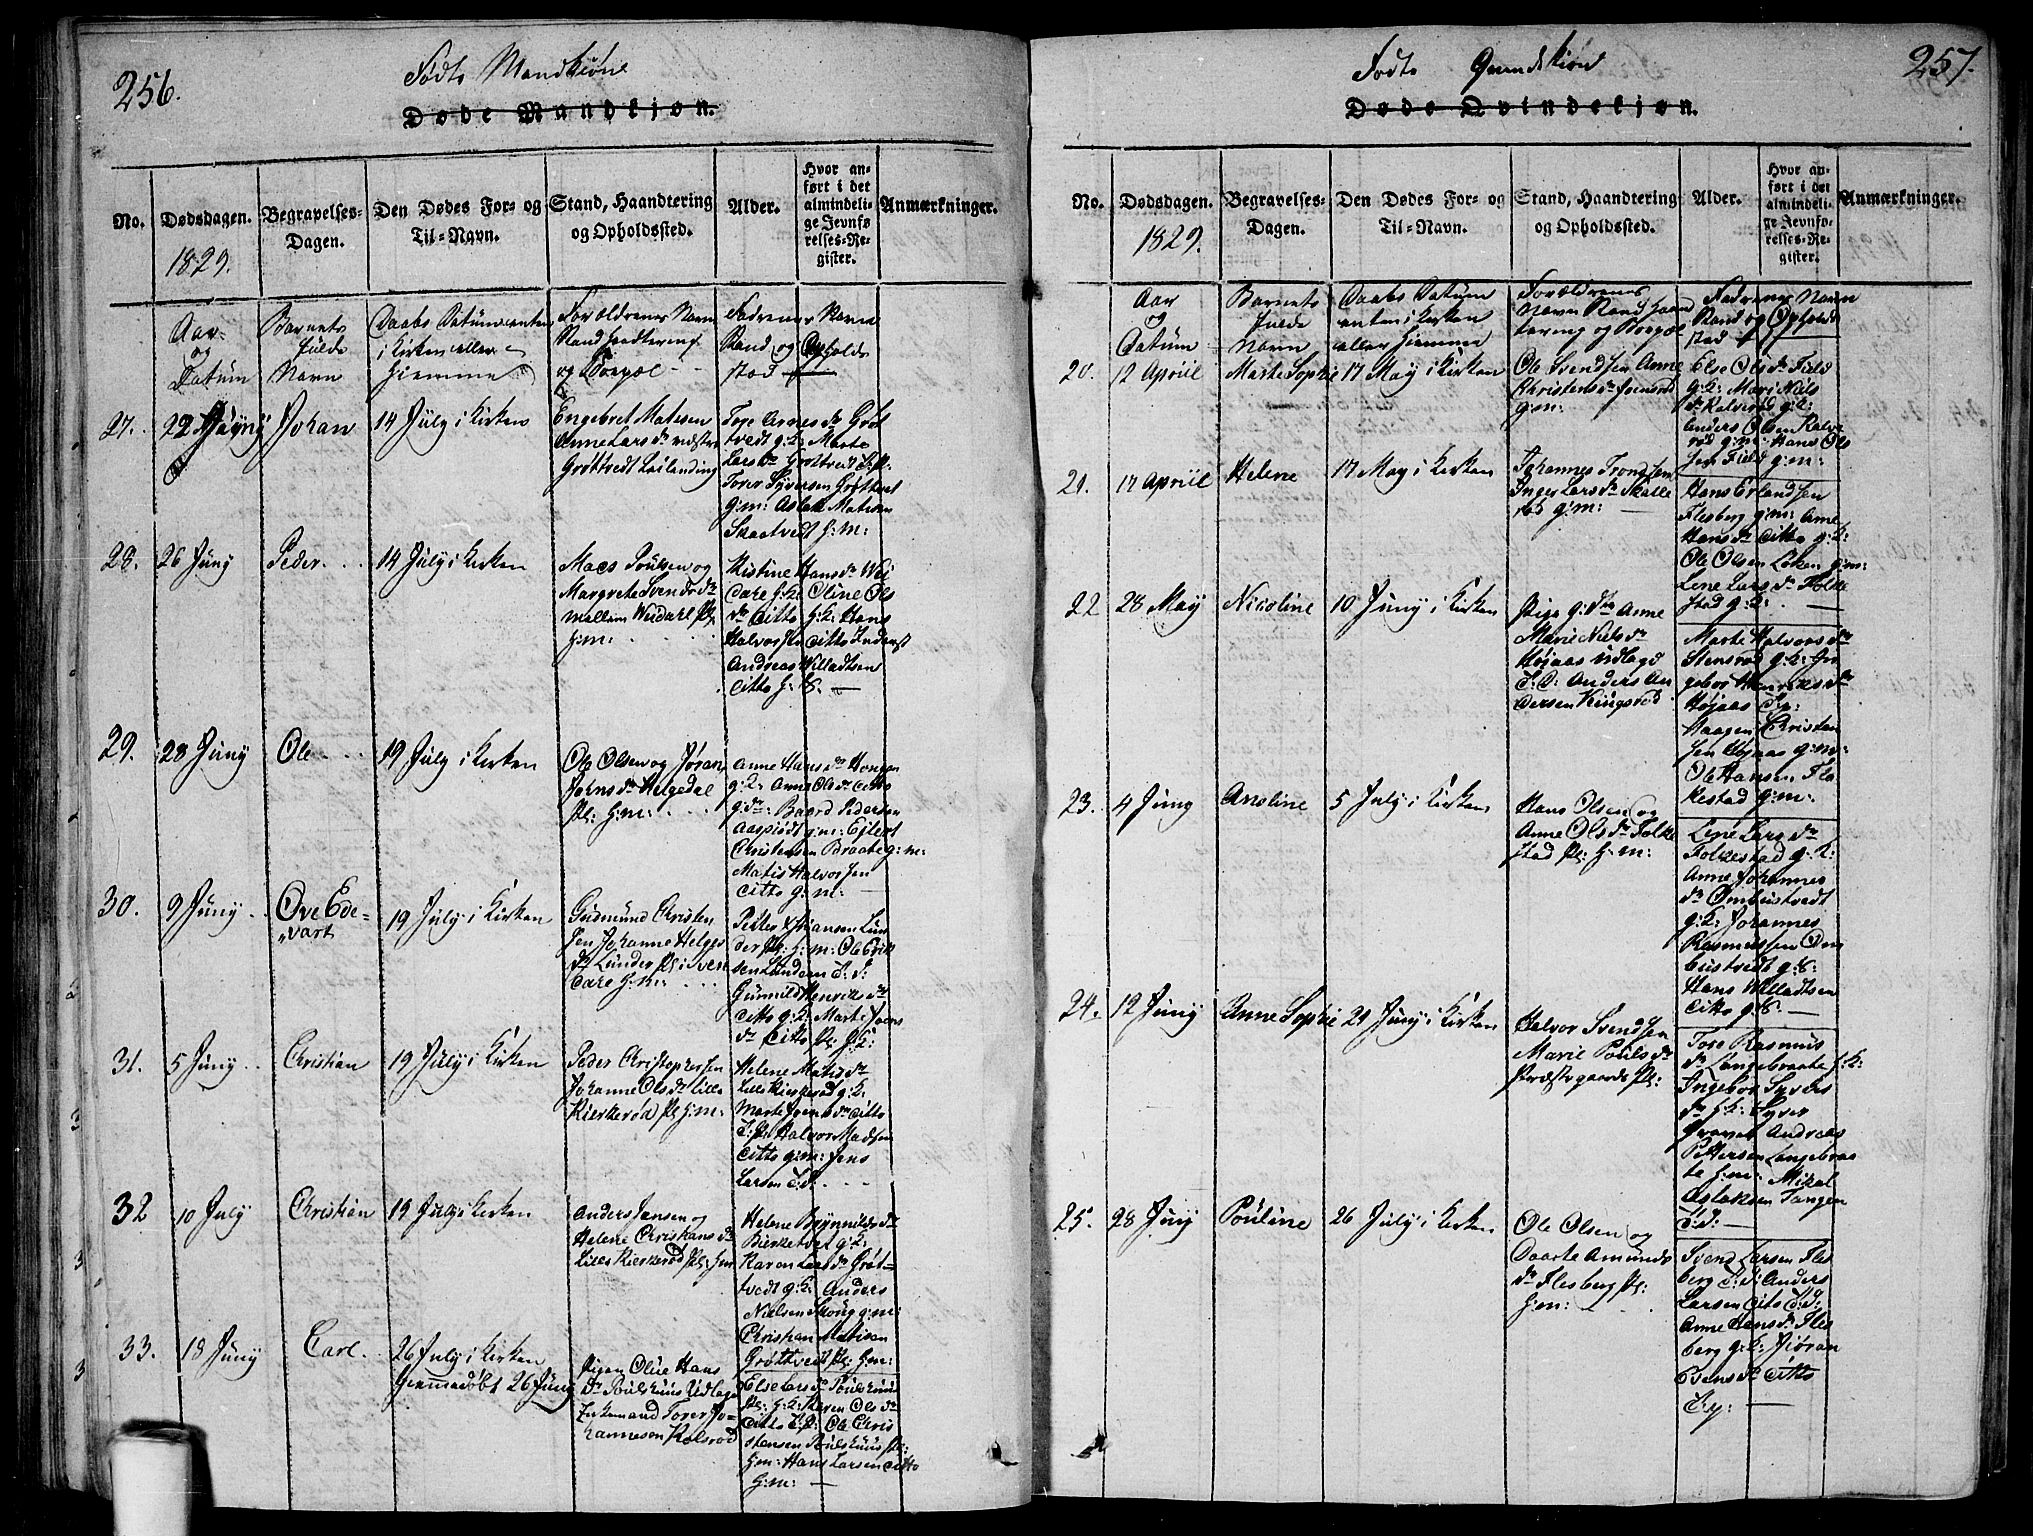 256.
Födte Mandkiöne
Døde Mandkjøn.
No.
Dødsdagen.
1829.
Begravelses-
Dagen.
Den Dødes For- og
Til-Navn.
Stand, Haandtering
og Opholdssted.
Alder.
Hvor an-
ført i det
almindeli-
ge Jevnfø-
relses-Re-
gister.
Anmærkninger.
Aar
og
Datum
Barnets
fulde
Navn
Daabs Datum enten
i Kirken eller
Hiemme
Forældrenes Navn
Stand Haandtering
og Boepæl
Fadrenes Navn
Stand og Opholds
stæd
27.
Johan
14 July i Kirken
Engebret Matisen
Anne Lars Dr
Grøttvedt
Tore Arnes Dr Grøt
tvedt g:K: Marte
Lars Dr Grøttvedt
Torer Syversen Grøttvet
g:m: Aslak Matisen
Skaatvedt g:m:
28.
26 Juny
Peder
14 July i Kirken
Maes Poulsen og
Margrete Svends Dr
Mellem Weidahl Pl:
g:m:
Kristine Hans Dr Wei
Dale g:K: Oline Ols
Dr Citto g:K: Hans
Halvorsen Citto
Andreas Willadtsen
Citto g:K:
29.
28 Juny
Ole
19 July i Kirken
Ole Olsen og Jøran
Johns Dr Helgedal
Pl: g:m:
Anne Hans Dr
g:K: Anne Ols Dr Citto
g: Dr Baard Pedersen
g:m: Ejlert
Christensen Braate g:m:
Matis Halvorsen
Citto g:m:
30.
9 Juny
Ove Ede-
vart
19 July i Kirken
Gudmund Christen
sen Johanne Helges
Dr Lunder Pl:
g:m:
Petter Hansen Lun
der Pl: g:m: Ole Erik
sen Lunden
Gunnild Henriks Dr
Citto g:K: Marte
Dr Citto Pl: g:K:
31.
5 Juny
Christian
19 July i Kirken
Peder Christophersen
Johanne Ols Dr Lille
Kierkerød Pl: g:m:
Helene Matis Dr
Lille Kierkerød g:K:
Marte Dr Citto
Halvor Madsen
Citto g:m: Jens
Larsen
32
10 July
Christian
19 July i Kirken
Anders Jansen og
Helene Christians Dr
Lille Kierkerød Pl: g:m
Helene Brynnilds Dr
Bierketvet g:K:
Karen Lars Dr Grøt-
tvedt g:K: Anders
Nielsen Skoug g:m:
Christian Matisen
Grøttvedt Pl: g:m:
33.
18 Juny
Carl
26 July i Kirken
Hiemmedøbt 26 Juny
Pigen Oline Hans
Dr Poulshuus Udlagt
Torer Jo-
hannesen Kolsrød
Else Lars Dr Poulshuus
Pl: g:K: Karen Ols Dr
Citto Ole Chris
tensen Poulshuus Pl:
g:m: Hans Larsen Citto
g:m:
257.
Fødte Qvindekiön
Døde Qvindekjøn.
No.
Dødsdagen.
1829.
Begravelses-
Dagen.
Den Dødes For- og
Til-Navn.
Stand, Haandtering
og Opholdssted.
Alder.
Hvor an-
ført i det
almindeli-
ge Jevnfø-
relses-Re-
gister.
Anmærkninger.
Aar
og
Datum
Barnets
fulde
Navn
Daabs Datum
enten i Kirken
eller Hiemme
Forældrenes
Navn Stand Haan
tering og Boepæl
Fadrenes Navn
Stand og Opholds
stæd
20.
12 Apriil
Marte Sophie
17 May i Kirken
Ole Svendsen Anne
Christens Dr
g:m:
Else Ols Dr Field
g:K: Mari Niels
Dr Kalverød g:K:
Anders Olsen Kalve
rød g:m: Hans Ols
sen Field g:m:
21.
17 Apriil
Helene
17 May i Kirken
Johannes Trondsen
Inger Lars Dr Skalle
rød g:m:
Hans Erlandsen
Flesberg g:m: Anne
Hans Dr Citto g:K:
Ole Olsen Løken g:m:
Lene Lars Dr Folke
stad g:K:
22
28 May
Nicoline
10 Juny i Kirken
Pige Anne
Marie Niels Dr
Højaas Udlagd
Anders An
dersen Kingsrød
Marte Halvors Dr
Stensrød g:K: In
gebor Henriks Dr
Højaas
Haagen Christen
sen Højaas g:m:
Ole Hansen Fla
kestad g:m:
23.
4 Juny
Anoline
5 July i Kirken
Hans Olsen og
Anne Ols Dr Folke
stad Pl: g:m:
Lene Lars Dr
Folkestad g:K:
Anne Johannes
Dr Ombustvedt
g:K: Johannes
Rasmussen Om
bustvedt g:K:
Hans Willadtsen
Citto g:K:
24.
12 Juny
Anne Sophie
21 Juny i Kirken
Halvor Svendsen
Marie Pouls Dr
Præstegaards Pl:
Tore Rasmus
Dr Langebraate g:K:
Ingebor Syvers
Dr g:K: Syver
Andreas
Pettersen Langebraa
te g:m: Mikel
Aslaksen Tangen
25.
28 Juny
Pouline
26 July i Kirken
Ole Olsen og
Daarte Amunds
Dr Flesberg Pl:
g:m:
Svend Larsen Fles
berg Anders
Larsen Citto
Anne Hans Dr Fles
berg g:K: Jøran
Evens Dr Citto